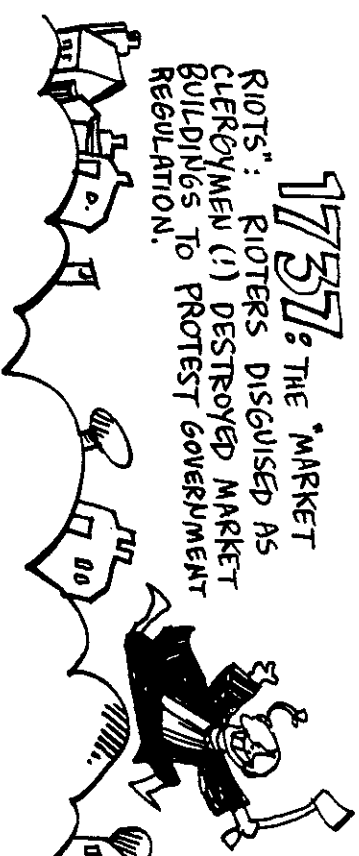 1737: THE "MARKET
RIOTS": RIOTERS DISGUISED AS
CLERGYMEN (!) DESTROYED MARKET
BUILDINGS TO PROTEST GOVERNMENT
REGULATION.